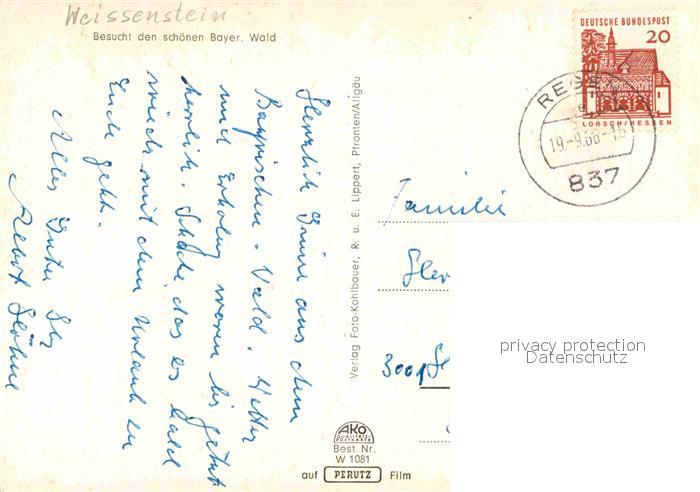 Weissenstein
Besucht den schönen Bayer. Wald
Herzlich Grüne aus dem
Bayrischen. Wald. Wetter
und Erholung waren bis jetzt
herrlich. Schade das es bald
wieder mit dem Urlaub zu
Ende geht.
Alles Gute
Verlag Foto-Kohlbauer, R. u. E. Lippert, Pfronten/Allgäu
AKO
QUALITÄTS
POSTKARTE
Best. Nr.
W 1081
auf PERUTZ Film
DEUTSCHE BUNDESPOST
20
LORSCH/HESSEN
REGE
19.-9.66-16
837
Familie
3001
privacy protection
Datenschutz